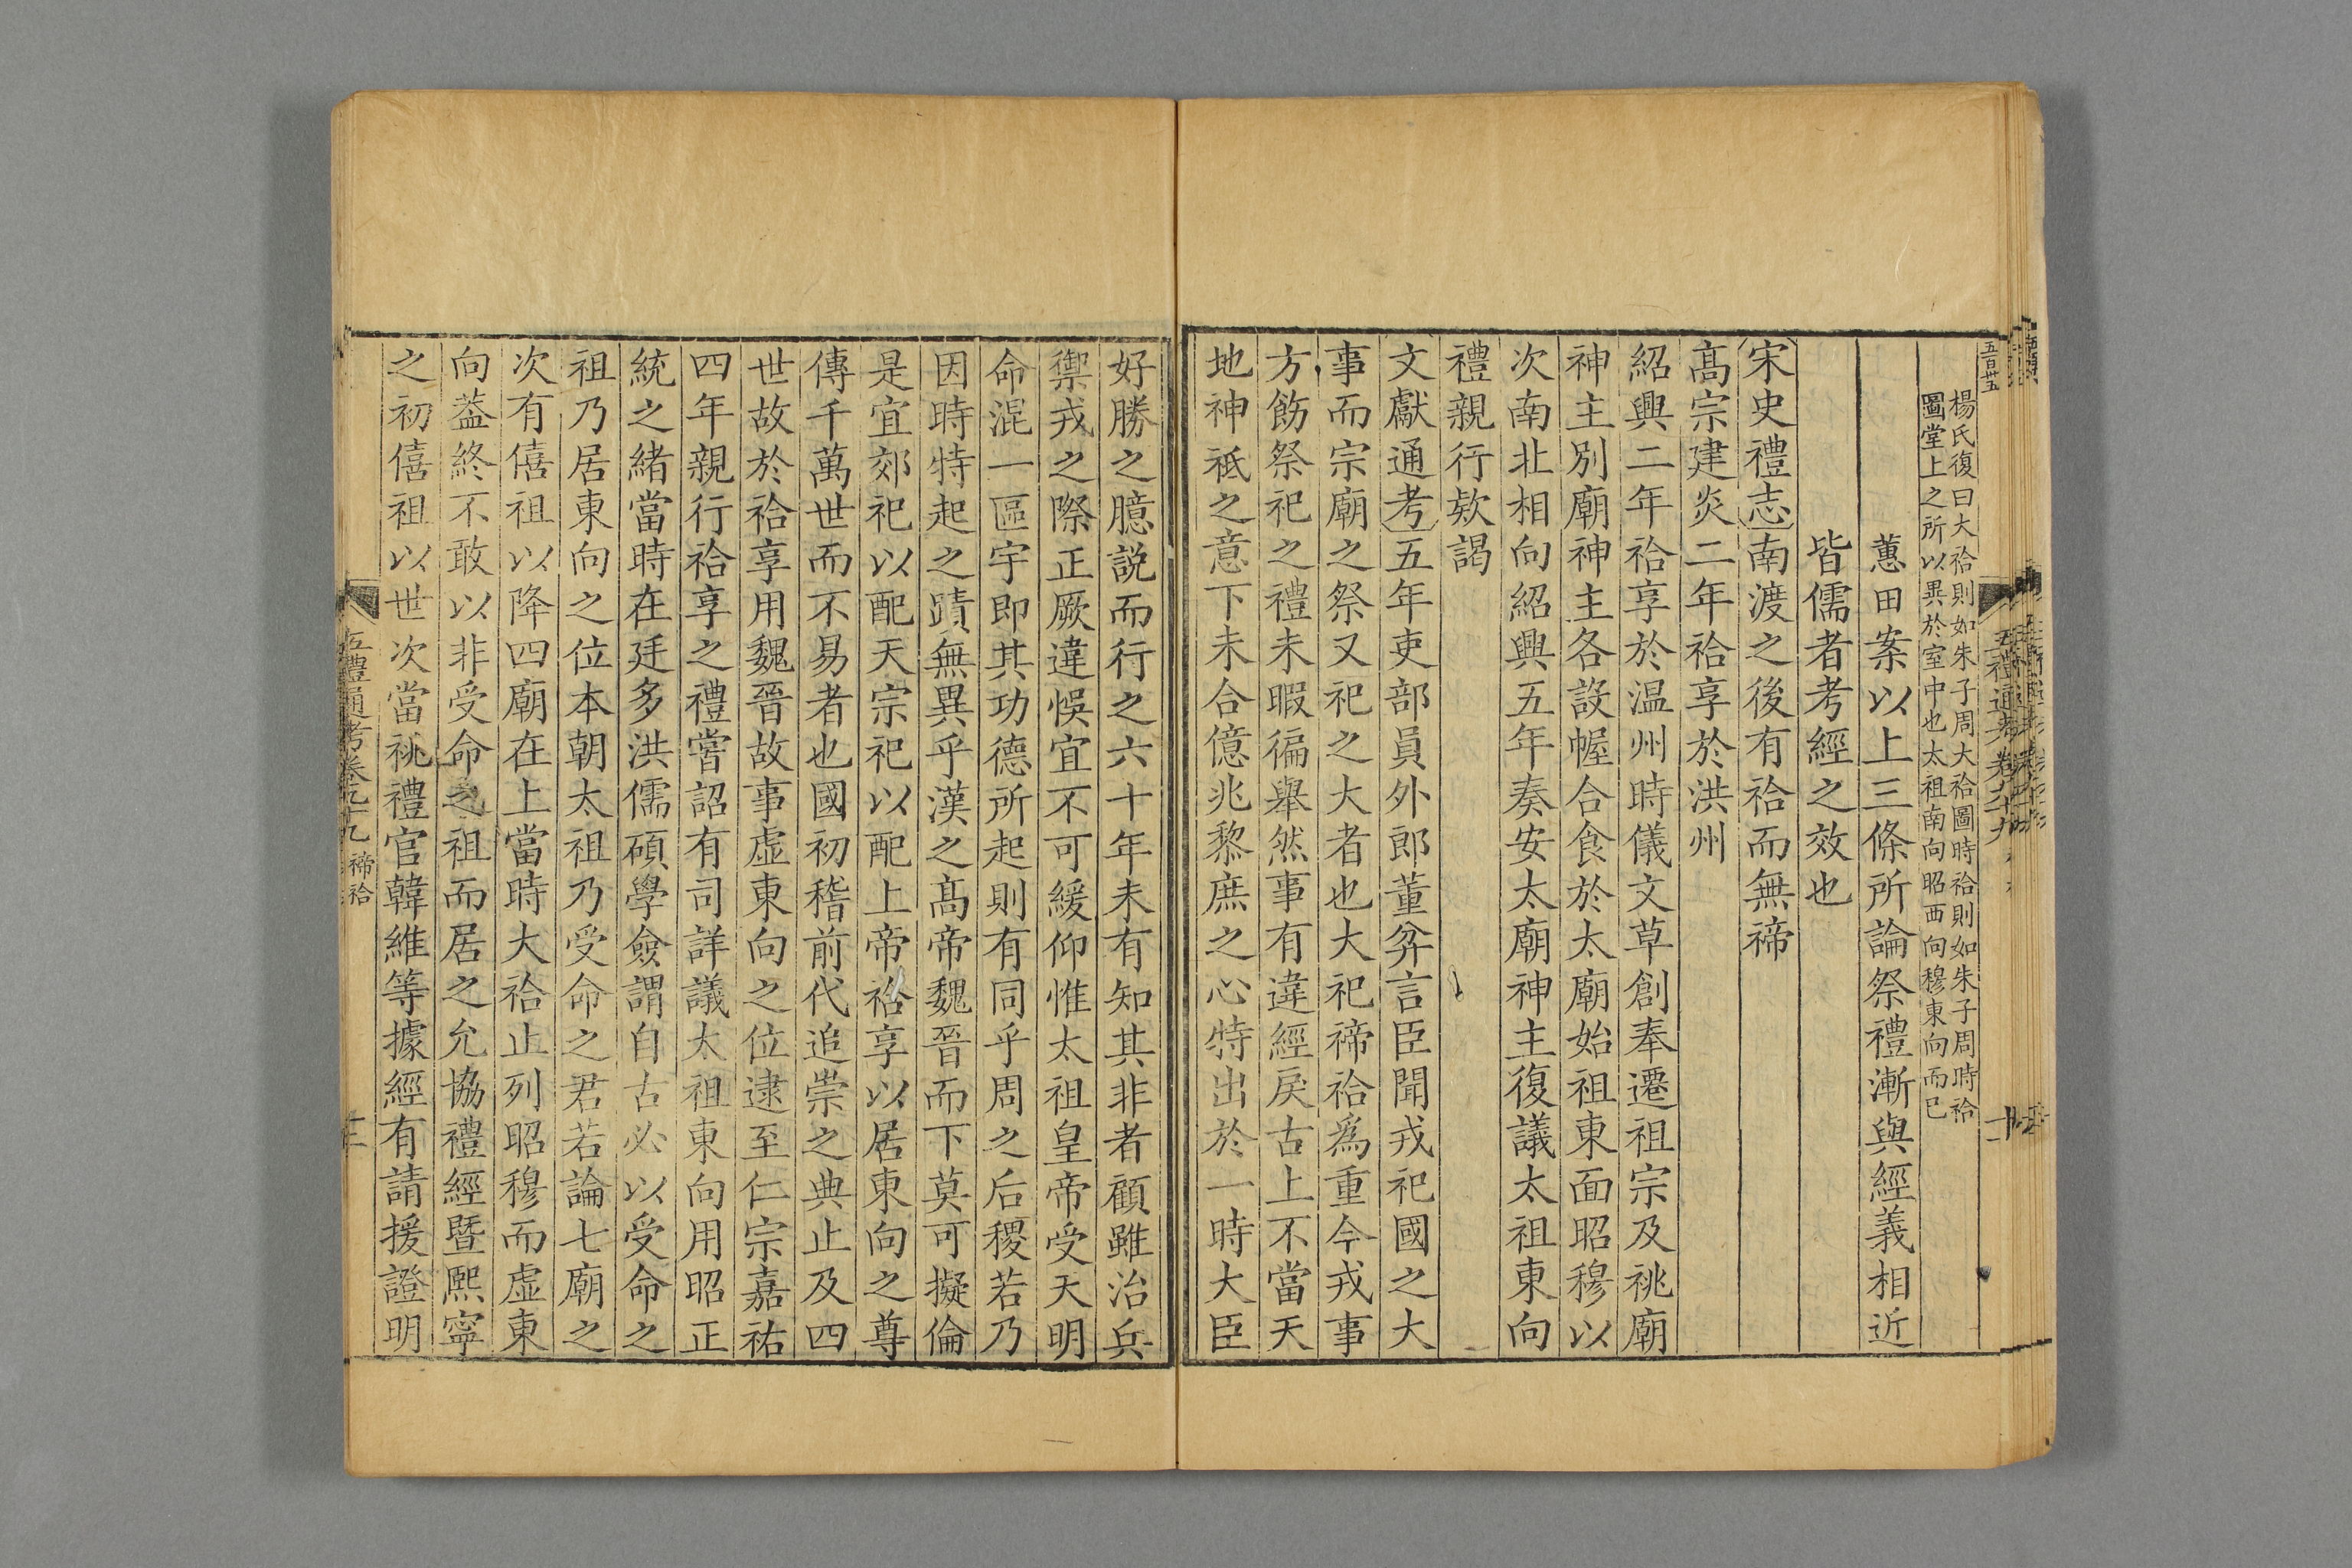 楊氏復曰大祫則如朱子周大祫圖時祫則如朱子周時祫
圖堂上之所以異於室中也太祖南向昭西向穆東向而已
蕙田案以上三條所論祭禮漸與經義相近
皆儒者考經之效也
宋史禮志南渡之後有祫而無禘
髙宗建炎二年祫享於洪州
紹興二年祫享於温州時儀文草創奉遷祖宗及祧廟
神主別廟神主各設幄合食於太廟始祖東面昭穆以
次南北相向紹興五年奏安太廟神主復議太祖東向
禮親行欵謁
文獻通考五年吏部員外郎董弅言臣聞戎祀國之大
事而宗廟之祭又祀之大者也大祀禘祫爲重今戎事
方飭祭祀之禮未暇徧舉然事有違經戾古上不當天
地神祇之意下未合億兆黎庶之心特出於一時大臣
好勝之臆説而行之六十年未有知其非者顧雖治兵
禦戎之際正厥違悞宜不可緩仰惟太祖皇帝受天明
命混一區宇即其功德所起則有同乎周之后稷若乃
因時特起之蹟無異乎漢之髙帝魏晉而下莫可擬倫
是宜郊祀以配天宗祀以配上帝祫享以居東向之尊
傳千萬世而不易者也國初稽前代追崇之典止及四
世故於祫享用魏晉故事虛東向之位逮至仁宗嘉祐
四年親行祫享之禮嘗詔有司詳議太祖東向用昭正
統之緒當時在廷多洪儒碩學僉謂自古必以受命之
祖乃居東向之位本朝太祖乃受命之君若論七廟之
次有僖祖以降四廟在上當時大祫止列昭穆而虛東
向葢終不敢以非受命之祖而居之允協禮經暨熙寧
之初僖祖以世次當祧禮官韓維等據經有請援證明
五禮通考卷九十九 禘祫